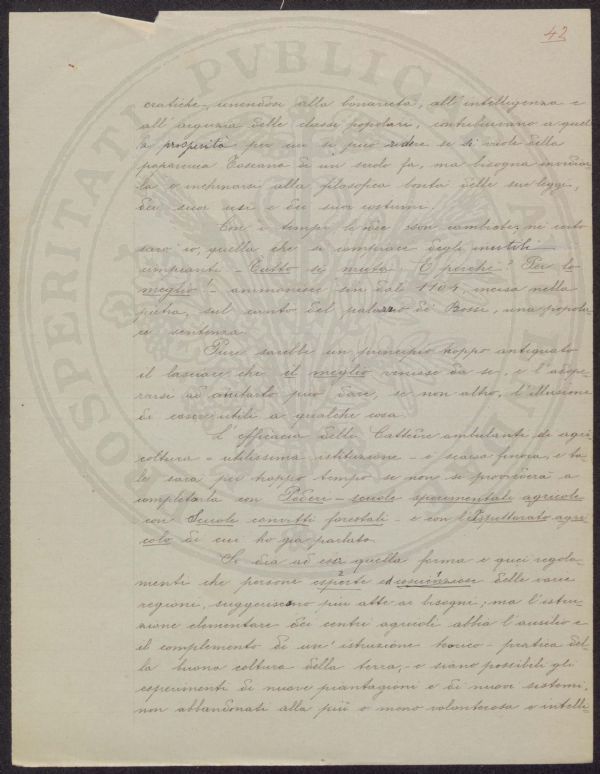 42
cratiche, unendosi alla bonarietà, all'intelligenza e
all'arguzia delle classi popolari, contribuivano a quel
la prosperità per cui si può ridere se si vuole della
Toscana di un secolo fa, ma bisogna invidiar
la e inchinarsi alla filosofica bontà delle sue leggi,
dei suoi usi e dei suoi costumi.
Con i tempi le idee son cambiate; nè certo
sarò io, quella che si compiace degli inutili
rimpianti - Tutto si muta - E perchè? Per lo
meglio! - ammonisce sin dal 1104, incisa nella
pietra, sul canto del palazzo di Bossi, una popola-
re sentenza.
Pure sarebbe un principio troppo antiquato
il lasciare che il meglio venisse da sè, e l'adope-
rarsi ad aiutarlo può dare, se non altro, l'illusione
di essere utili a qualche cosa.
L'efficacia delle Cattedre ambulanti di agri
coltura - utilissima istituzione - è scarsa finora, e ta-
le sarà per troppo tempo se non si provvederà a
completarla con Poderi-scuole sperimentali agricole
con Scuole convitti forestali - e con l'Ispettorato agri
colo di cui ho già parlato.
Si dia ad essi quella forma e quei regola-
menti che persone esperte e delle varie
regioni, suggeriscono più atte ai bisogni; ma l'istru-
zione elementare dei centri agricoli abbia l'ausilio e
il complemento di un'istruzione teorico-pratica del-
la buona coltura della terra, e siano possibili gli
esperimenti di nuove piantagioni e di nuovi sistemi,
non abbandonati alla più o meno volonterosa e intelli-
PROSPERITATI PVBLICAE